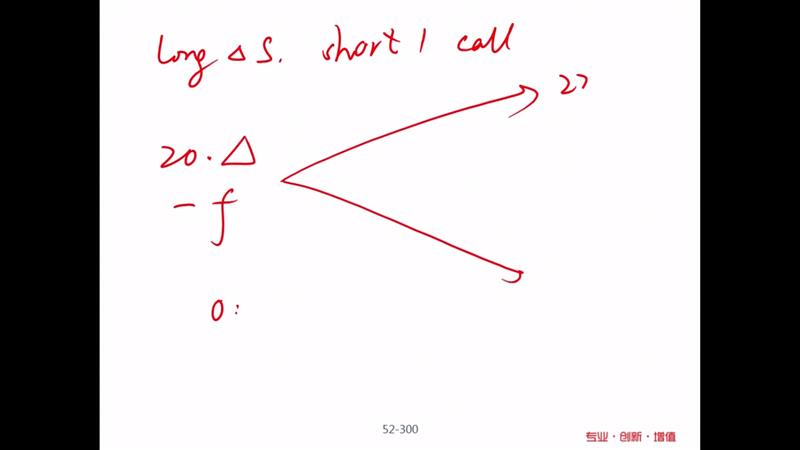 long △ S. short 1 call
22
20.△
- f
0:
52-300
专业·创新·增值